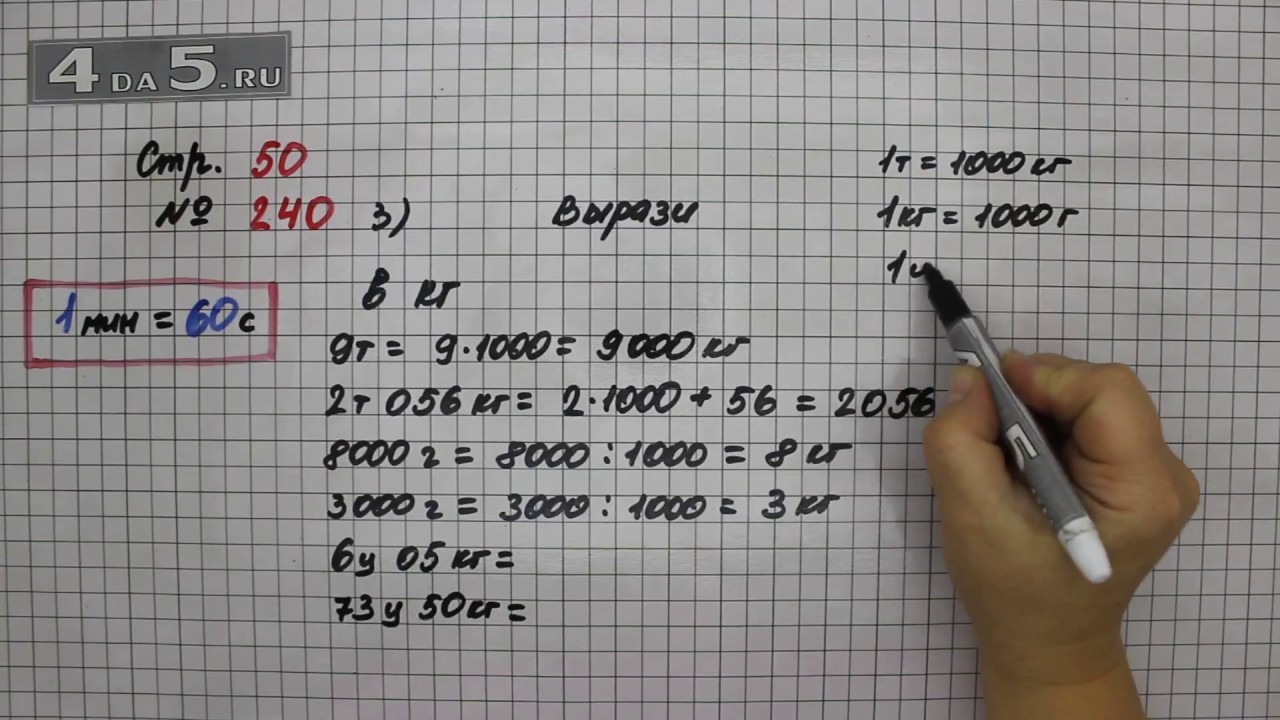 4 DA 5.RU
Стр. 50
№ 240 3) Вырази
1т = 1000 кг
1кг = 1000 г
1ц
1 мин = 60 с
в кг
9т = 9·1000 = 9000 кг
2т 056 кг = 2·1000 + 56 = 2056
8000 г = 8000 : 1000 = 8 кг
3000 г = 3000 : 1000 = 3 кг
6ц 05 кг =
73ц 50 кг =